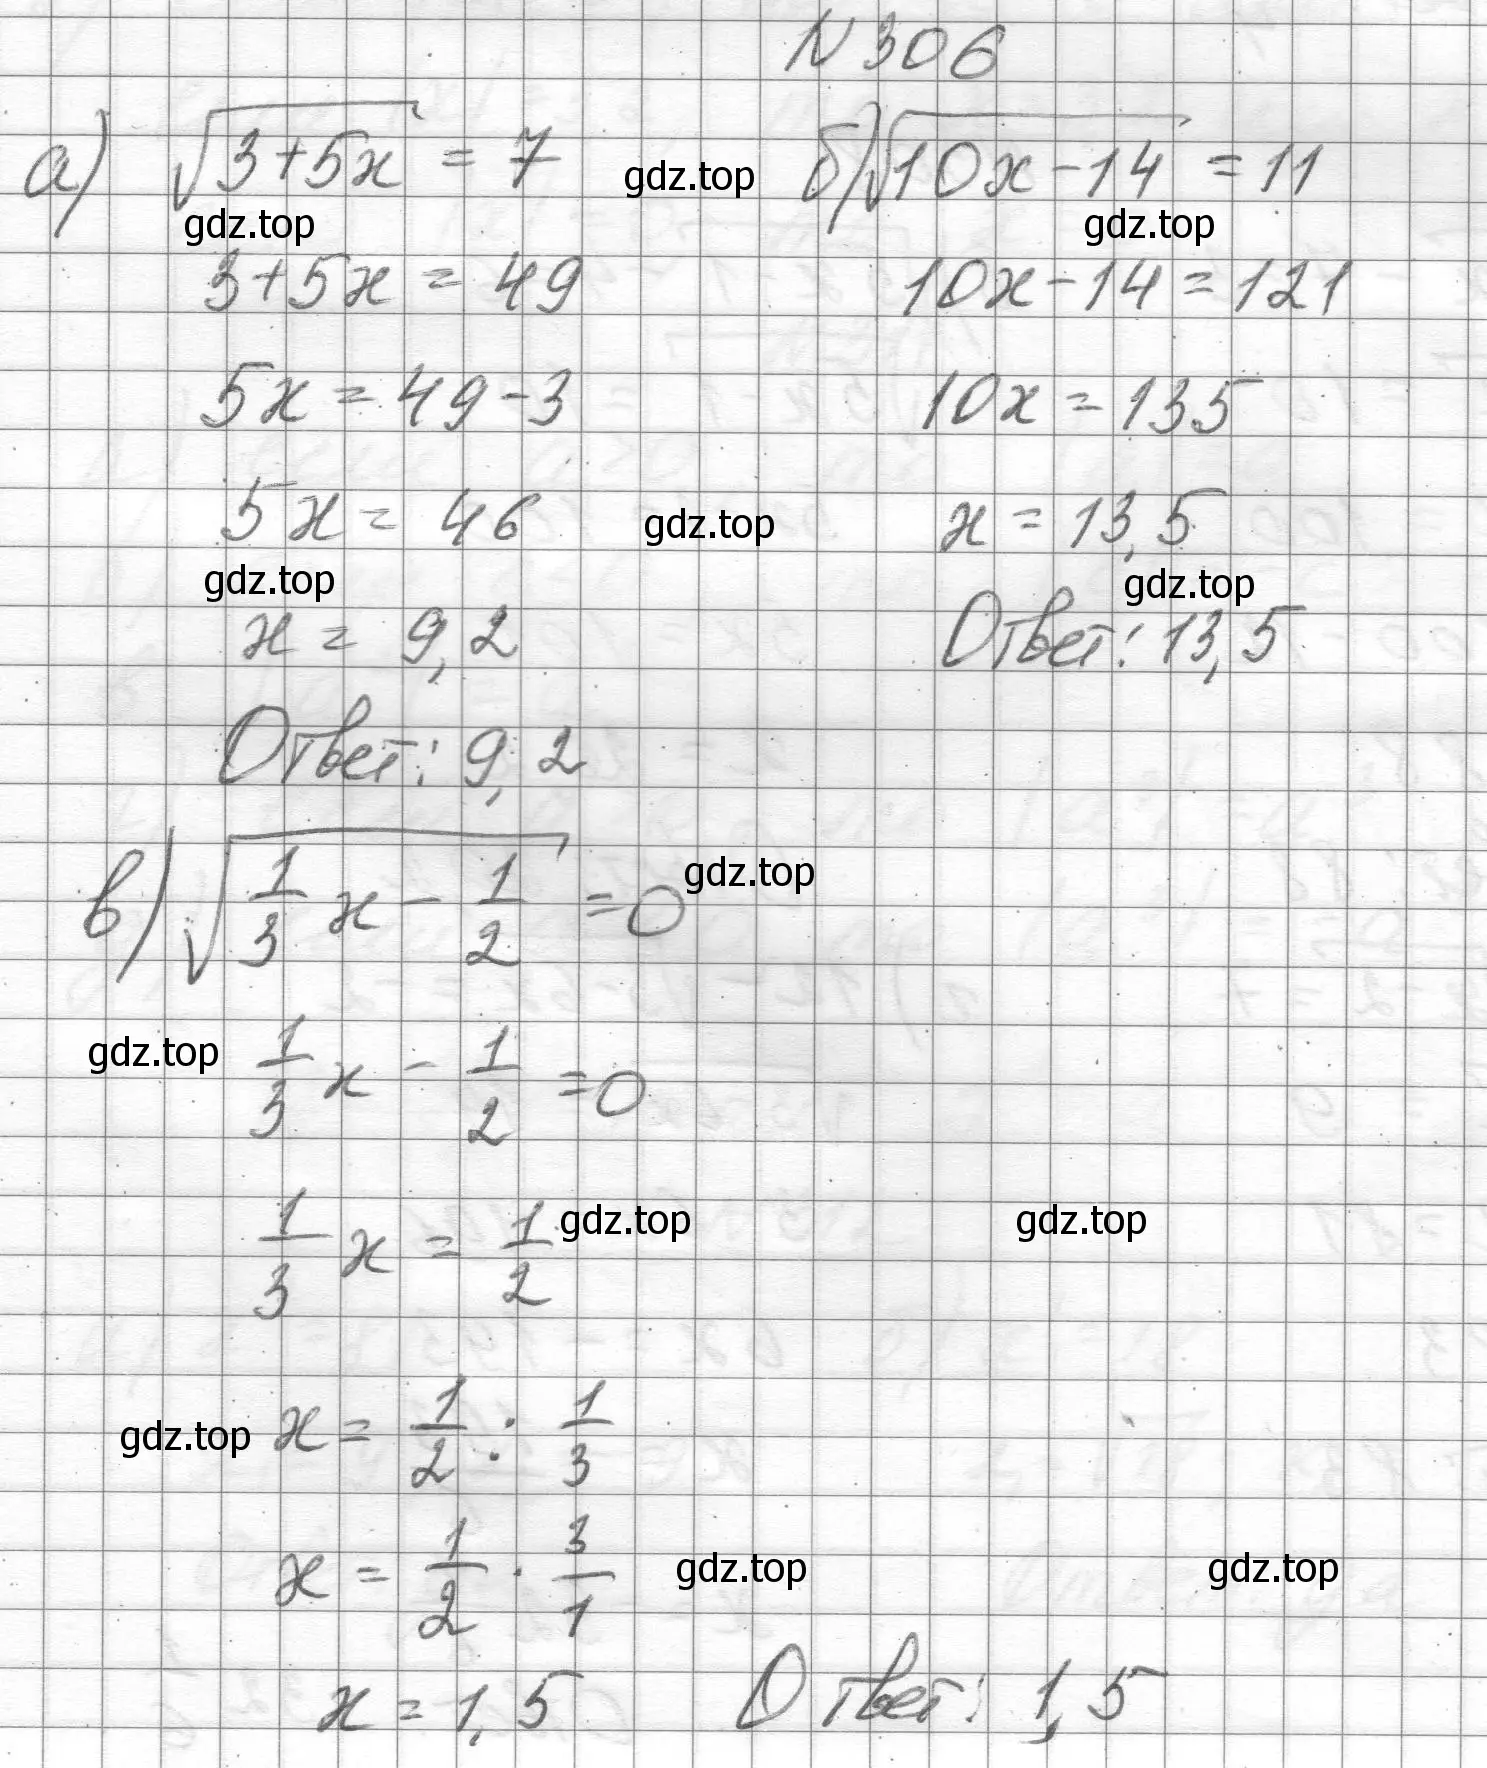 N 306
а) √(3+5x) = 7
3+5x = 49
5x = 49-3
5x = 46
x = 9,2
Ответ: 9,2
б) √(10x-14) = 11
10x-14 = 121
10x = 135
x = 13,5
Ответ: 13,5
в) √(1/3 x - 1/2) = 0
1/3 x - 1/2 = 0
1/3 x = 1/2
x = 1/2 : 1/3
x = 1/2 · 3/1
x = 1,5 Ответ: 1,5
gdz.top
gdz.top
gdz.top
gdz.top
gdz.top
gdz.top
gdz.top
gdz.top
gdz.top
gdz.top
gdz.top
gdz.top
gdz.top